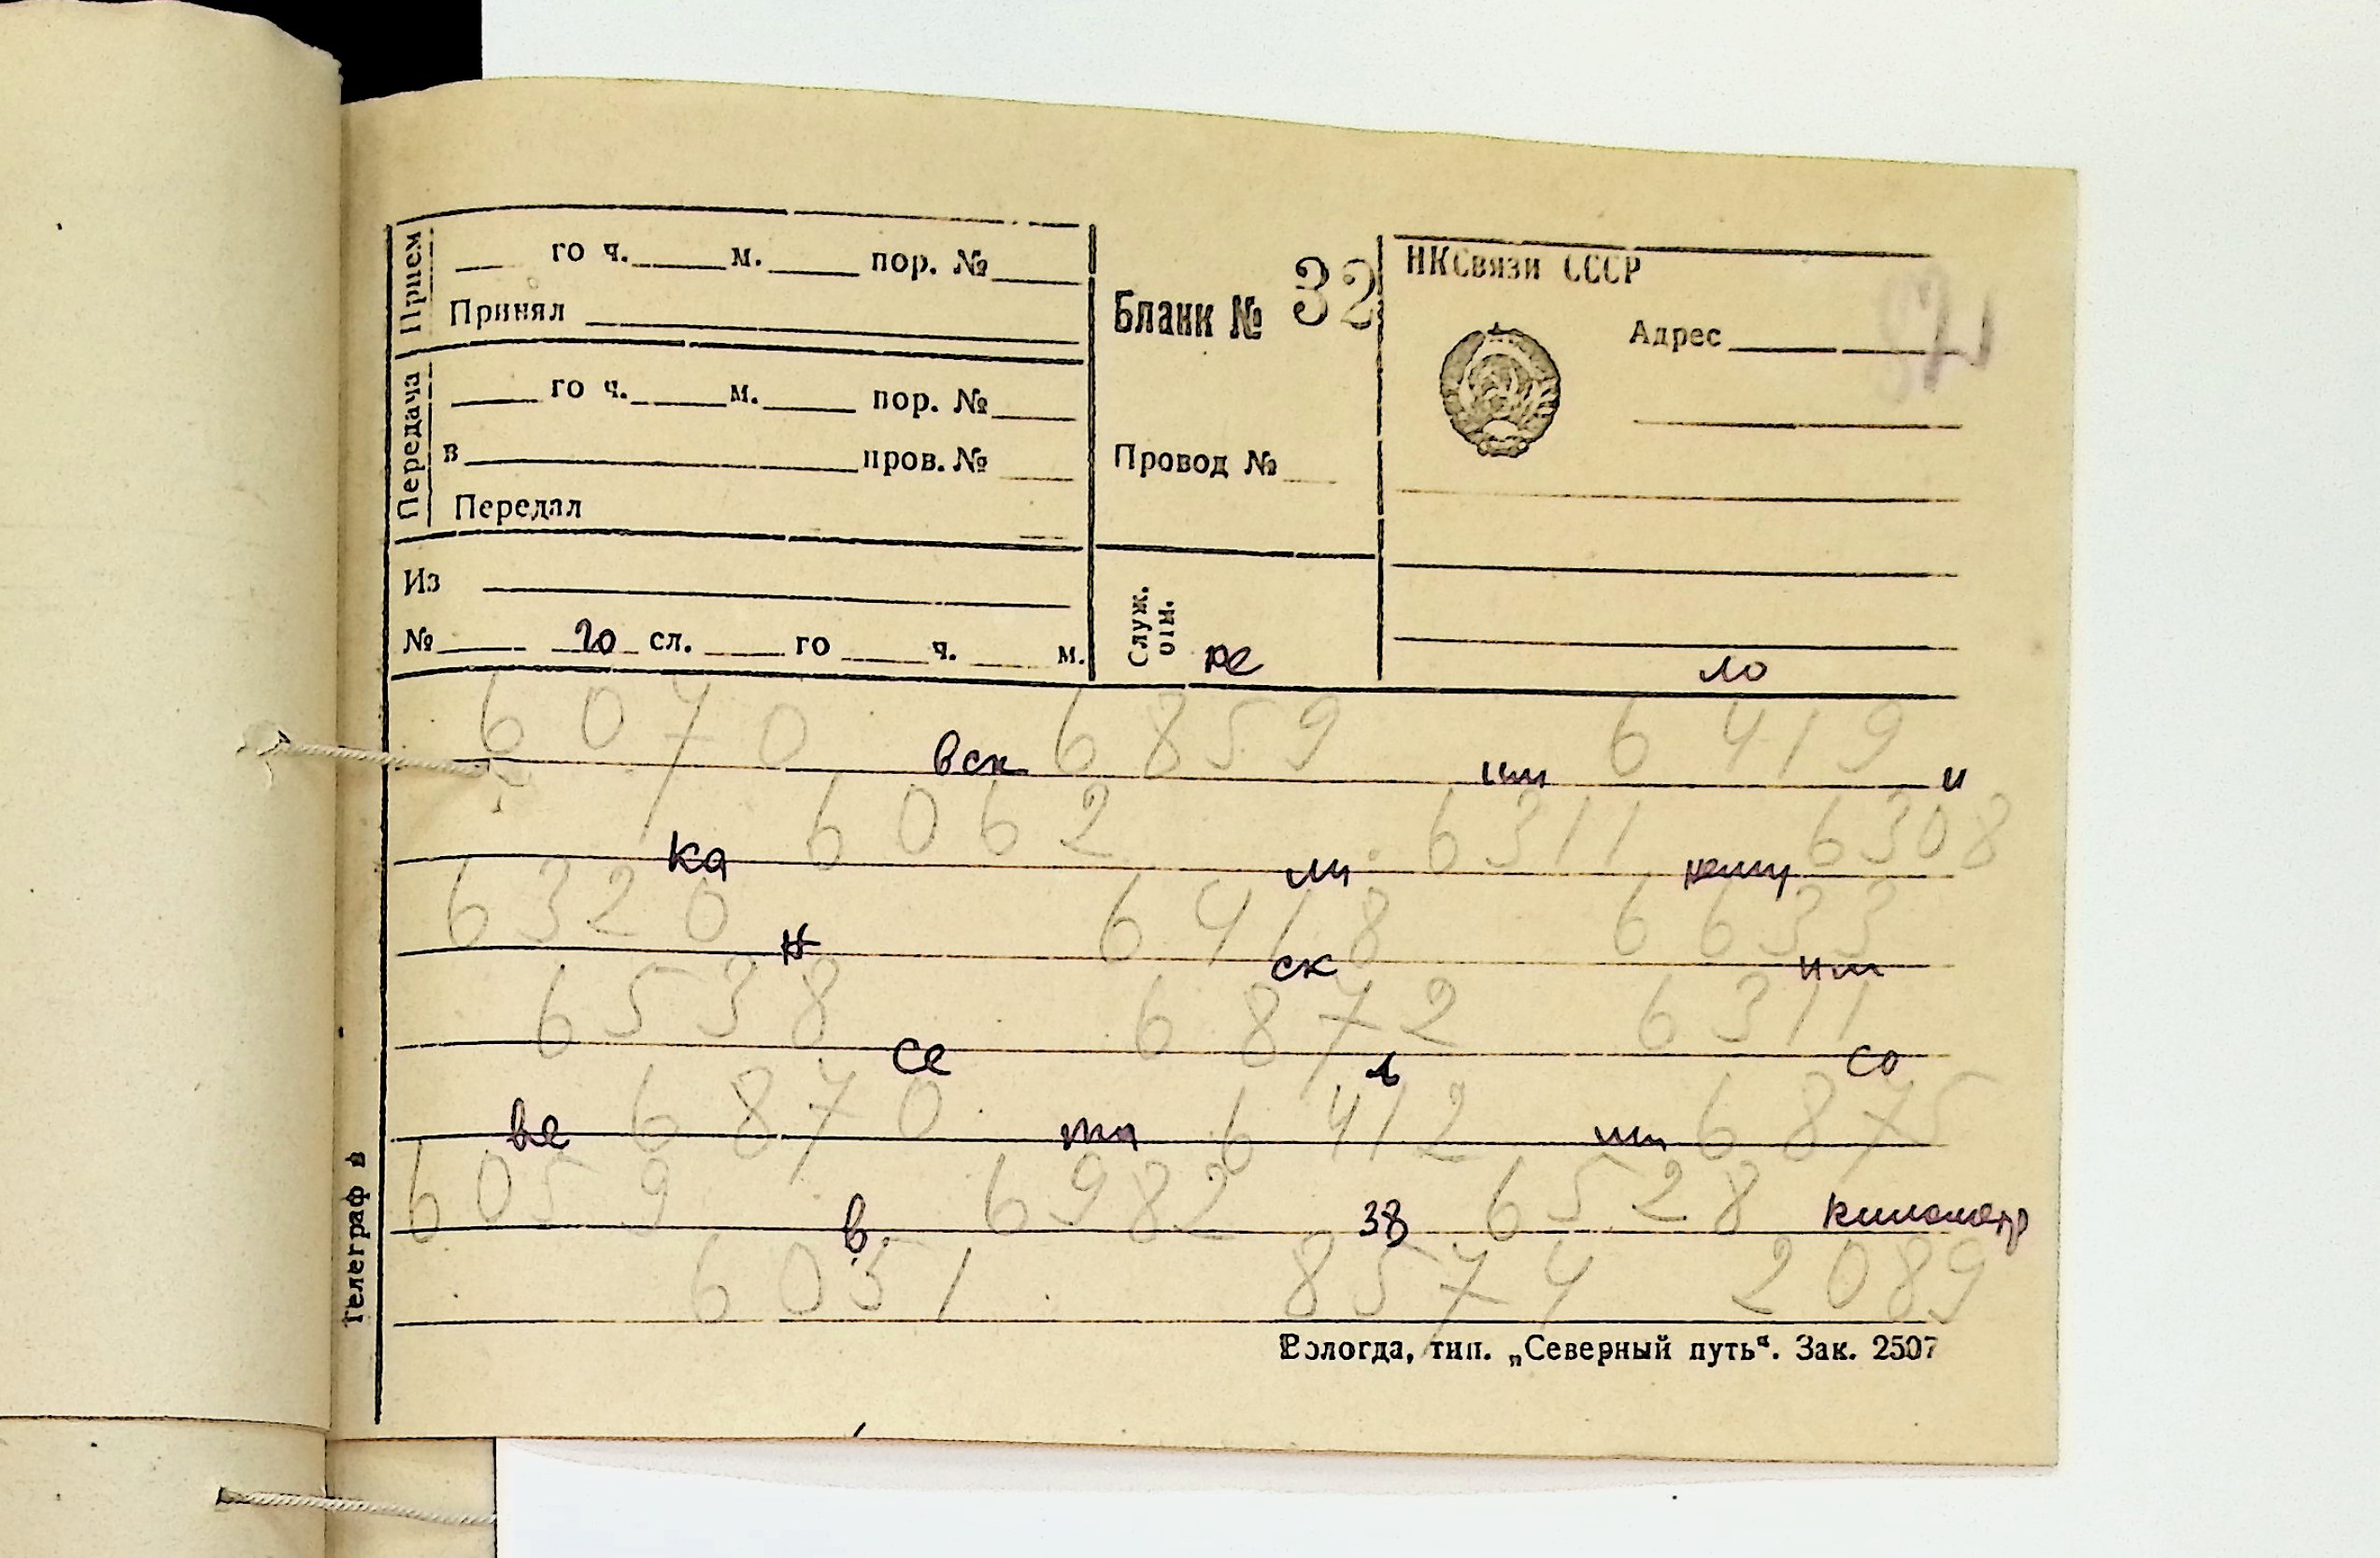 Прием
го ч. м. пор. №
Принял
Передача
го ч. м. пор. №
в пров. №
Передал
Из
№ го сл. го ч. м.
Бланк № 32
Провод №
Служ. отм. ре
НКСвязи СССР
Адрес
ло
6070 вск 6859 им 6419 и
ка 6062 ми 6311 6308
6320 н 6418 ск 6633 им
6538 се 6872 ь 6311 со
ве 6870 та 6412 им 6875
6059 в 6982 38 6528 километр
6051 8574 2089
Телеграф в
Вологда, тип. „Северный путь“. Зак. 2507